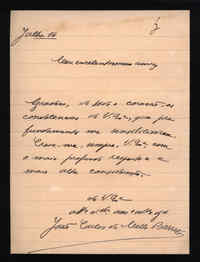 Julho 14
Meu excelentissimo amigo
Gracias, de todo o coração, as
condolencias de V. Exa., que pro
fundamente me sensibilisaram.
Creia-me, sempre, V. Exa., com
o mais profundo respeito e a
mais alta consideração,
de V. Exa.
João Carlos de Mello Barreto